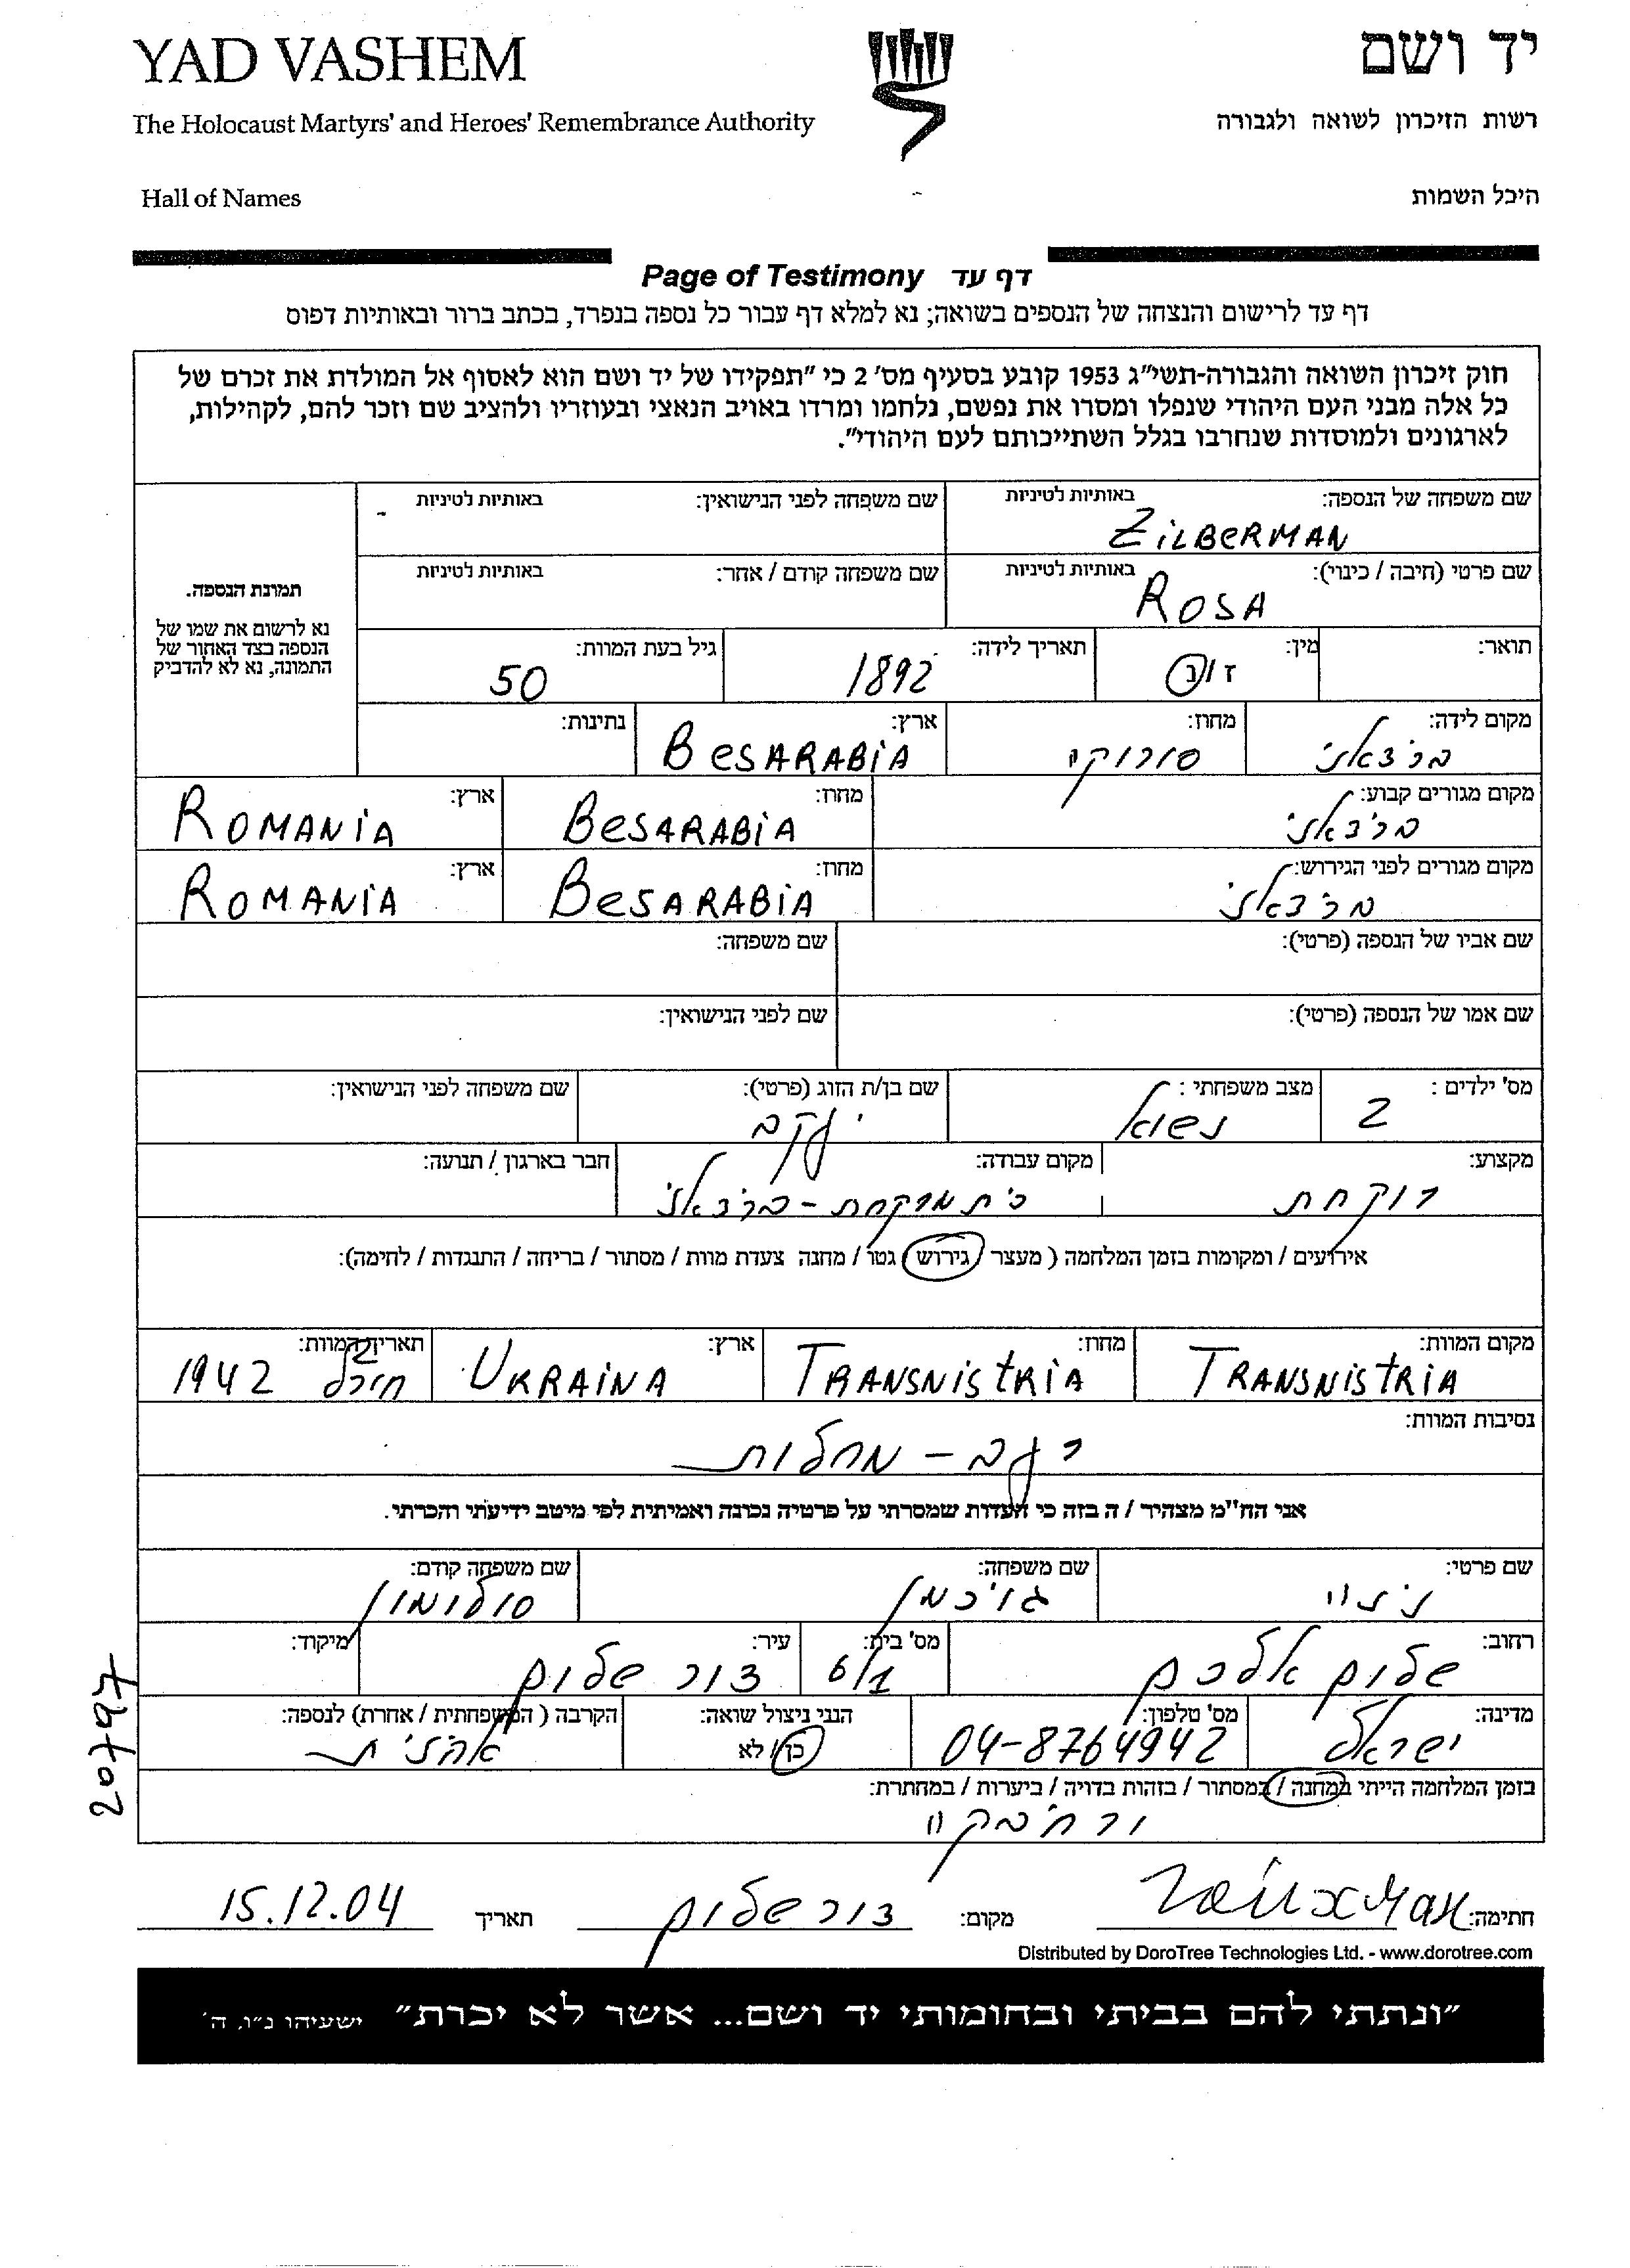 YAD VASHEM
יד ושם
The Holocaust Martyrs' and Heroes' Remembrance Authority
רשות הזיכרון לשואה ולגבורה
Hall of Names
היכל השמות
Page of Testimony דף עד
דף עד לרישום והנצחה של הנספים בשואה; נא למלא דף עבור כל נספה בנפרד, בכתב ברור ובאותיות דפוס
חוק זיכרון השואה והגבורה-תשי"ג 1953 קובע בסעיף מס' 2 כי "תפקידו של יד ושם הוא לאסוף אל המולדת את זכרם של
כל אלה מבני העם היהודי שנפלו ומסרו את נפשם, נלחמו ומרדו באויב הנאצי ובעוזריו ולהציב שם וזכר להם, לקהילות,
לארגונים ולמוסדות שנחרבו בגלל השתייכותם לעם היהודי".
שם משפחה של הנספה: באותיות לטיניות שם משפחה לפני הנישואין: באותיות לטיניות
ZiLBeRMAN -
שם פרטי (חיבה / כינוי): באותיות לטיניות שם משפחה קודם / אחר: באותיות לטיניות
ROSA
תמונת הנספה.
נא לרשום את שמו של
הנספה בצד האחור של
התמונה, נא לא להדביק
תואר: מין: תאריך לידה: גיל בעת המוות:
ז / נ 1892 50
מקום לידה: מחוז: ארץ: נתינות:
בריצ'אני סורוקי BesARABiA
מקום מגורים קבוע: מחוז: ארץ:
בריצ'אני BesARABiA ROMANiA
מקום מגורים לפני הגירוש: מחוז: ארץ:
בריצ'אני BesARABiA ROMANiA
שם אביו של הנספה (פרטי): שם משפחה:
שם אמו של הנספה (פרטי): שם לפני הנישואין:
מס' ילדים : מצב משפחתי : שם בן/ת הזוג (פרטי): שם משפחה לפני הנישואין:
2 נשוא' יעקב
מקצוע: מקום עבודה: חבר בארגון / תנועה:
רוקחת בית מרקחת - בריצ'אני
אירועים / ומקומות בזמן המלחמה ( מעצר / גירוש / גטו / מחנה צעדת מוות / מסתור / בריחה / התנגדות / לחימה):
מקום המוות: מחוז: ארץ: תאריך המוות:
TRANSNistRiA TRANSNistRiA UKRAiNA חורף 1942
נסיבות המוות:
רעב - מחלות
אני הח"מ מצהיר / ה בזה כי העדות שמסרתי על פרטיה נכונה ואמיתית לפי מיטב ידיעתי והכרתי.
שם פרטי: שם משפחה: שם משפחה קודם:
גויכמן סולומון
רחוב: מס' בית: עיר: מיקוד:
שלום אלכם 6/1 צור שלום
20797
מדינה: מס' טלפון: הנני ניצול שואה: הקרבה ( המשפחתית / אחרת) לנספה:
ישראל 04-8764942 כן / לא אחינית
בזמן המלחמה הייתי במחנה / במסתור / בזהות בדויה / ביערות / במחתרת:
ורחובקה
חתימה: מקום: צור שלום תאריך 15.12.04
Distributed by DoroTree Technologies Ltd. - www.dorotree.com
"ונתתי להם בביתי ובחומותי יד ושם... אשר לא יכרת" ישעיהו נ"ו, ה'